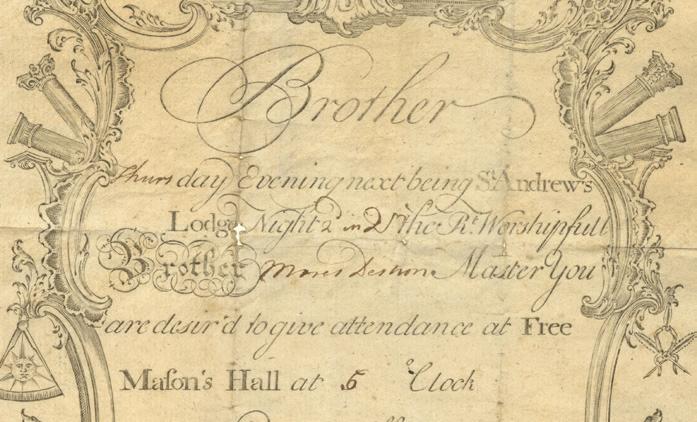 Brother
Thursday Evening next being St. Andrew's
Lodge Night the Rt. Worshipfull
Brother Moses Deshon Master You
are desir'd to give attendance at Free
Maſon's Hall at 5 o'Clock